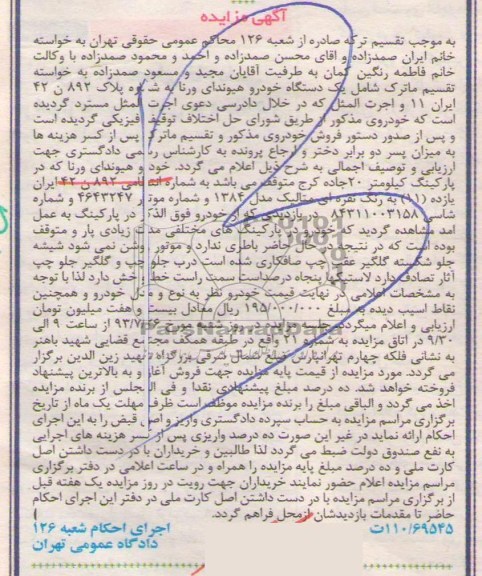 آگهی مزایده
به موجب تقسیم ترکه صادره از شعبه ۱۲۶ محاکم عمومی حقوقی تهران به خواسته
خانم ایران صمدزاده و اقای محسن صمدزاده و احمد و محمود صمدزاده با وکالت
خانم فاطمه رنگین کمان به طرفیت آقایان مجید و مسعود صمدزاده به خواسته
تقسیم ماترک شامل یک دستگاه خودرو هیوندای ورنا به شماره پلاک ۸۹۲ ن ۴۲
ایران ۱۱ و اجرت المثل که در خلال دادرسی دعوی اجرت المثل مسترد گردیده
است که خودروی مذکور از طریق شورای حل اختلاف توقیف فیزیکی گردیده است
و پس از صدور دستور فروش خودروی مذکور و تقسیم ماترک پس از کسر هزینه ها
به میزان پسر دو برابر دختر و ارجاع پرونده به کارشناس رسمی دادگستری جهت
ارزیابی و توصیف اجمالی به شرح ذیل اعلام می گردد. خودرو هیوندای ورنا که در
پارکینگ کیلومتر ۲۰جاده کرج متوقف می باشد به شماره انتظامی ۸۹۲ ن ۴۲ ایران
یازده (۱۱) به رنگ نقره ای متالیک مدل ۱۳۸۴ و شماره موتور ۴۶۴۳۲۴۷ و شماره
شاسی ۸۴۳۱۱۰۰۳۱۵۸ در بازدیدی که از خودرو فوق الذکر در پارکینگ به عمل
امد مشاهده گردید که خودرو در پارکینگ های مختلفی مدت زیادی پار و متوقف
بوده است که در نتیجه در حال حاضر باطری ندارد و موتور روشن نمی شود شیشه
جلو شکسته گلگیر عقب چپ صافکاری شده است درب جلو چپ و گلگیر جلو چپ
آثار تصادف دارد لاستیک پنجاه درصد است سمت راست خط و خش دارد لذا با توجه
به مشخصات اعلامی در نهایت قیمت خودرو نظر به نوع و مدل خودرو و همچنین
نقاط اسیب دیده به مبلغ ۱۹۵/۰۰۰/۰۰۰ ریال معادل بیست و هفت میلیون تومان
ارزیابی و اعلام میگردد. جلسه مزایده در روز مورخ ۹۳/۷ از ساعت ۹ الی
۹/۳۰ در اتاق مزایده به شماره ۲۱ واقع در طبقه همکف مجتمع قضایی شهید باهنر
به نشانی فلکه چهارم تهرانپارس ضلع شمال شرقی بزرگراه شهید زین الدین برگزار
می گردد. مورد مزایده از قیمت پایه مزایده جهت فروش آغاز و به بالاترین پیشنهاد
فروخته خواهد شد. ده درصد مبلغ پیشنهادی نقدا و فی المجلس از برنده مزایده
اخذ می گردد و الباقی مبلغ را برنده مزایده موظف است ظرف مهلت یک ماه از تاریخ
برگزاری مراسم مزایده به حساب سپرده دادگستری واریز و اصل قیض را به این اجرای
احکام ارائه نماید در غیر این صورت ده درصد واریزی پس از کسر هزینه های اجرایی
به نفع صندوق دولت ضبط می گردد لذا طالبین و خریداران با در دست داشتن اصل
کارت ملی و ده درصد مبلغ پایه مزایده را همراه و در ساعت اعلامی در دفتر برگزاری
مراسم مزایده اعلام حضور نمایند خریداران جهت رویت در روز مزایده یک هفته قبل
از برگزاری مراسم مزایده با در دست داشتن اصل کارت ملی در دفتر این اجرای احکام
حاضر تا مقدمات بازدیدشان ازمحل فراهم گردد.
۱۱۰/۶۹۵۴۵ت
اجرای احکام شعبه ۱۲۶
دادگاه عمومی تهران